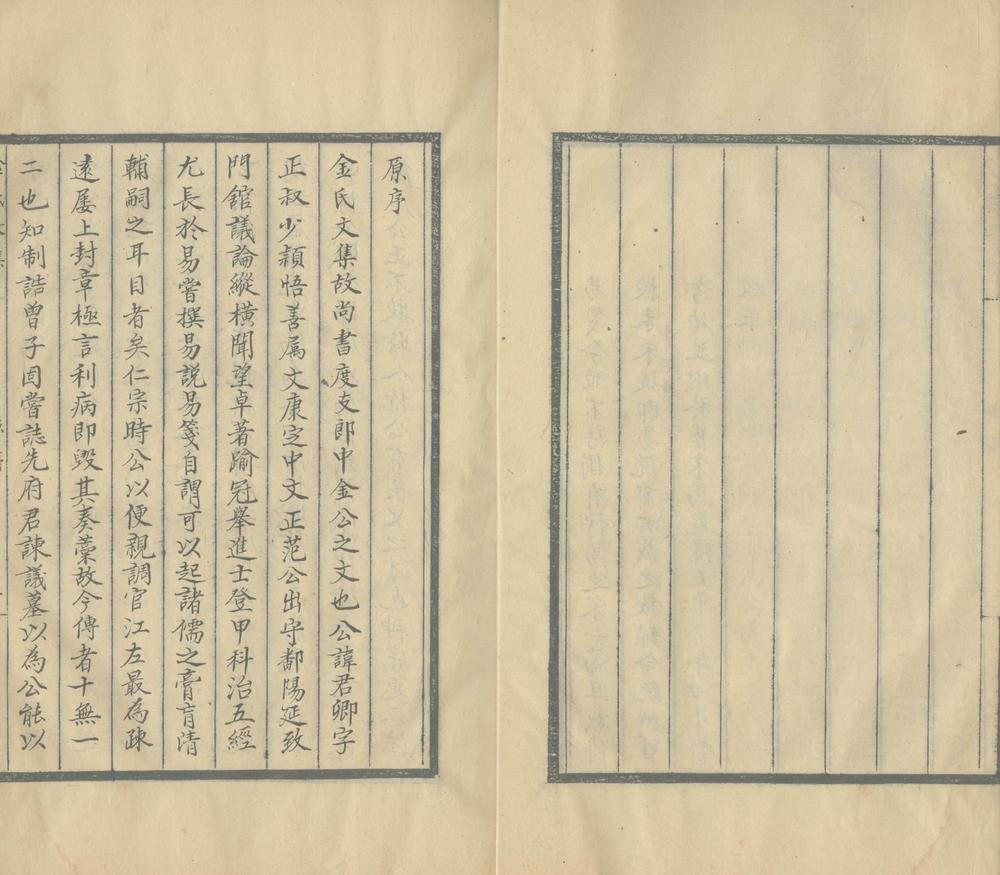 原序
金氏文集故尚書度支郎中金公之文也公諱君卿字
正叔少頴悟善属文康定中文正范公出守鄱陽延致
門舘議論縱横聞望卓著踰冠舉進士登甲科治五經
尤長於易嘗撰易説易箋自謂可以起諸儒之膏肓清
輔嗣之耳目者矣仁宗時公以便親調官江左最為疎
逺屡上封章極言利病即毀其奏藁故今傳者十無一
二也知制誥曾子固嘗誌先府君諫議墓以為公能以